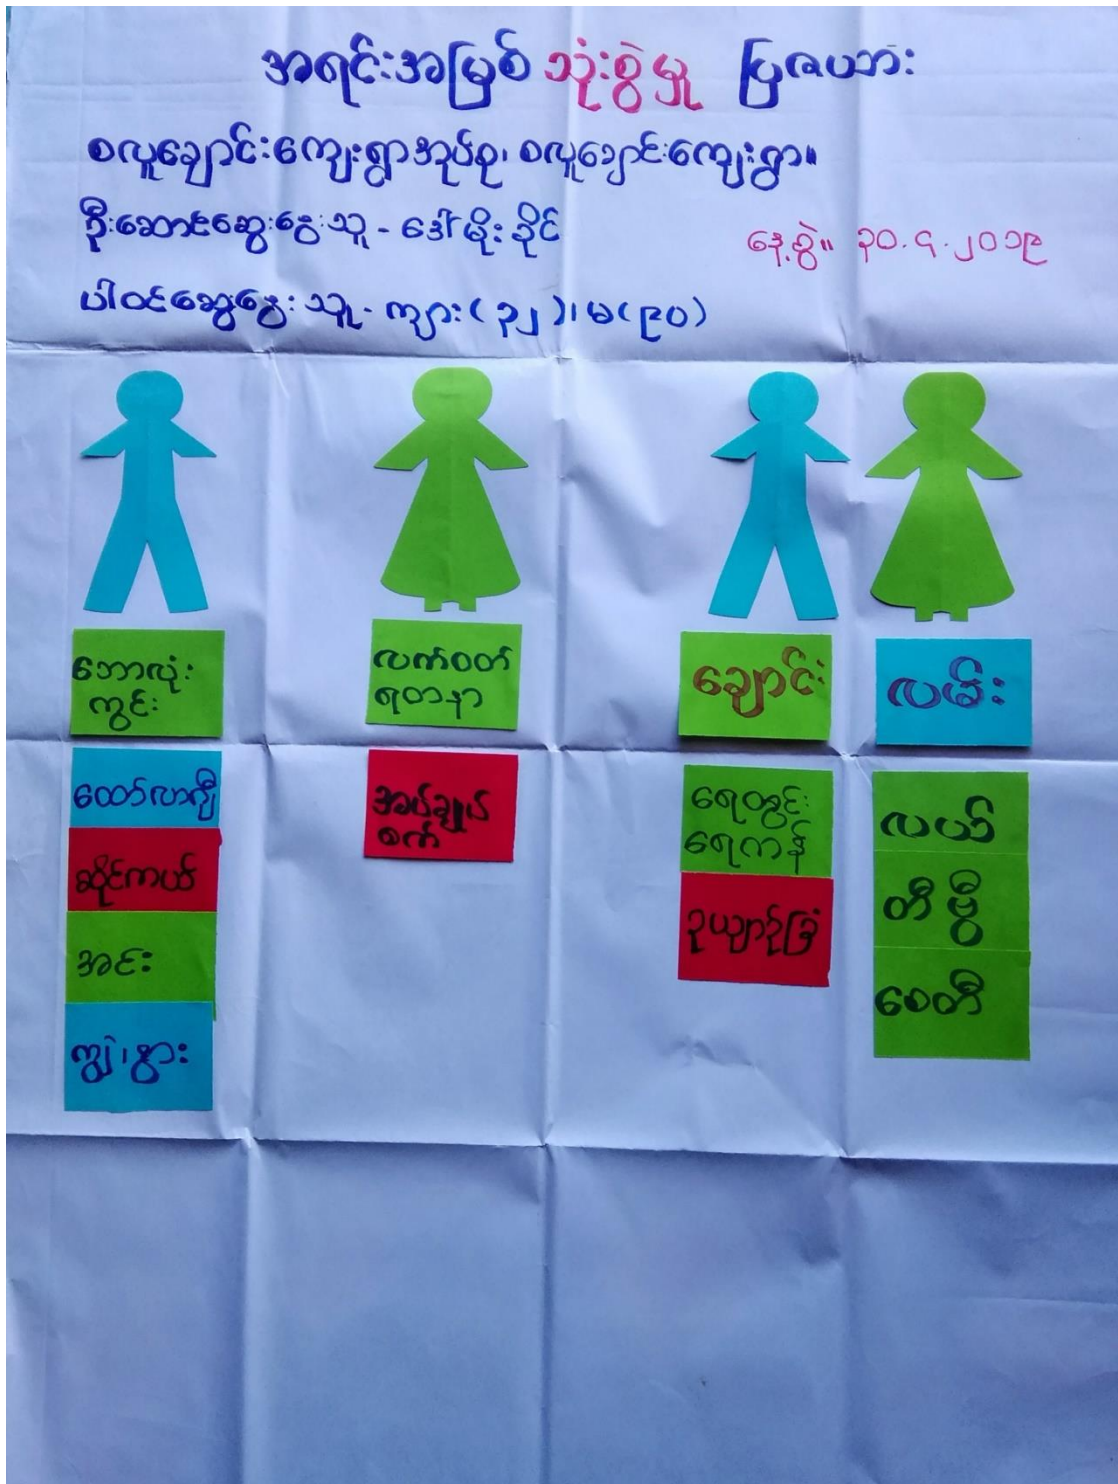 အရင်းအမြစ် သုံးစွဲမှု ပြဇယား
စလူချောင်းကျေးရွာအုပ်စု၊ စလူချောင်းကျေးရွာ။
ဦးဆောင်ဆွေးနွေးသူ - ဒေါ်မိုးခိုင်
နေ့စွဲ။ ၃၀.၄.၂၀၁၉
ပါဝင်ဆွေးနွေးသူ - ကျား(၃၂)၊ မ(၉၀)
ဘောလုံး
ကွင်း
ထော်လာဂျီ
ဆိုင်ကယ်
အင်း
ကျွဲ၊နွား
လက်ဝတ်
ရတနာ
အပ်ချုပ်
စက်
ချောင်း
ရေတွင်း
ရေကန်
ဥယျာဉ်ခြံ
လမ်း
လယ်
တီဗွီ
စေတီ